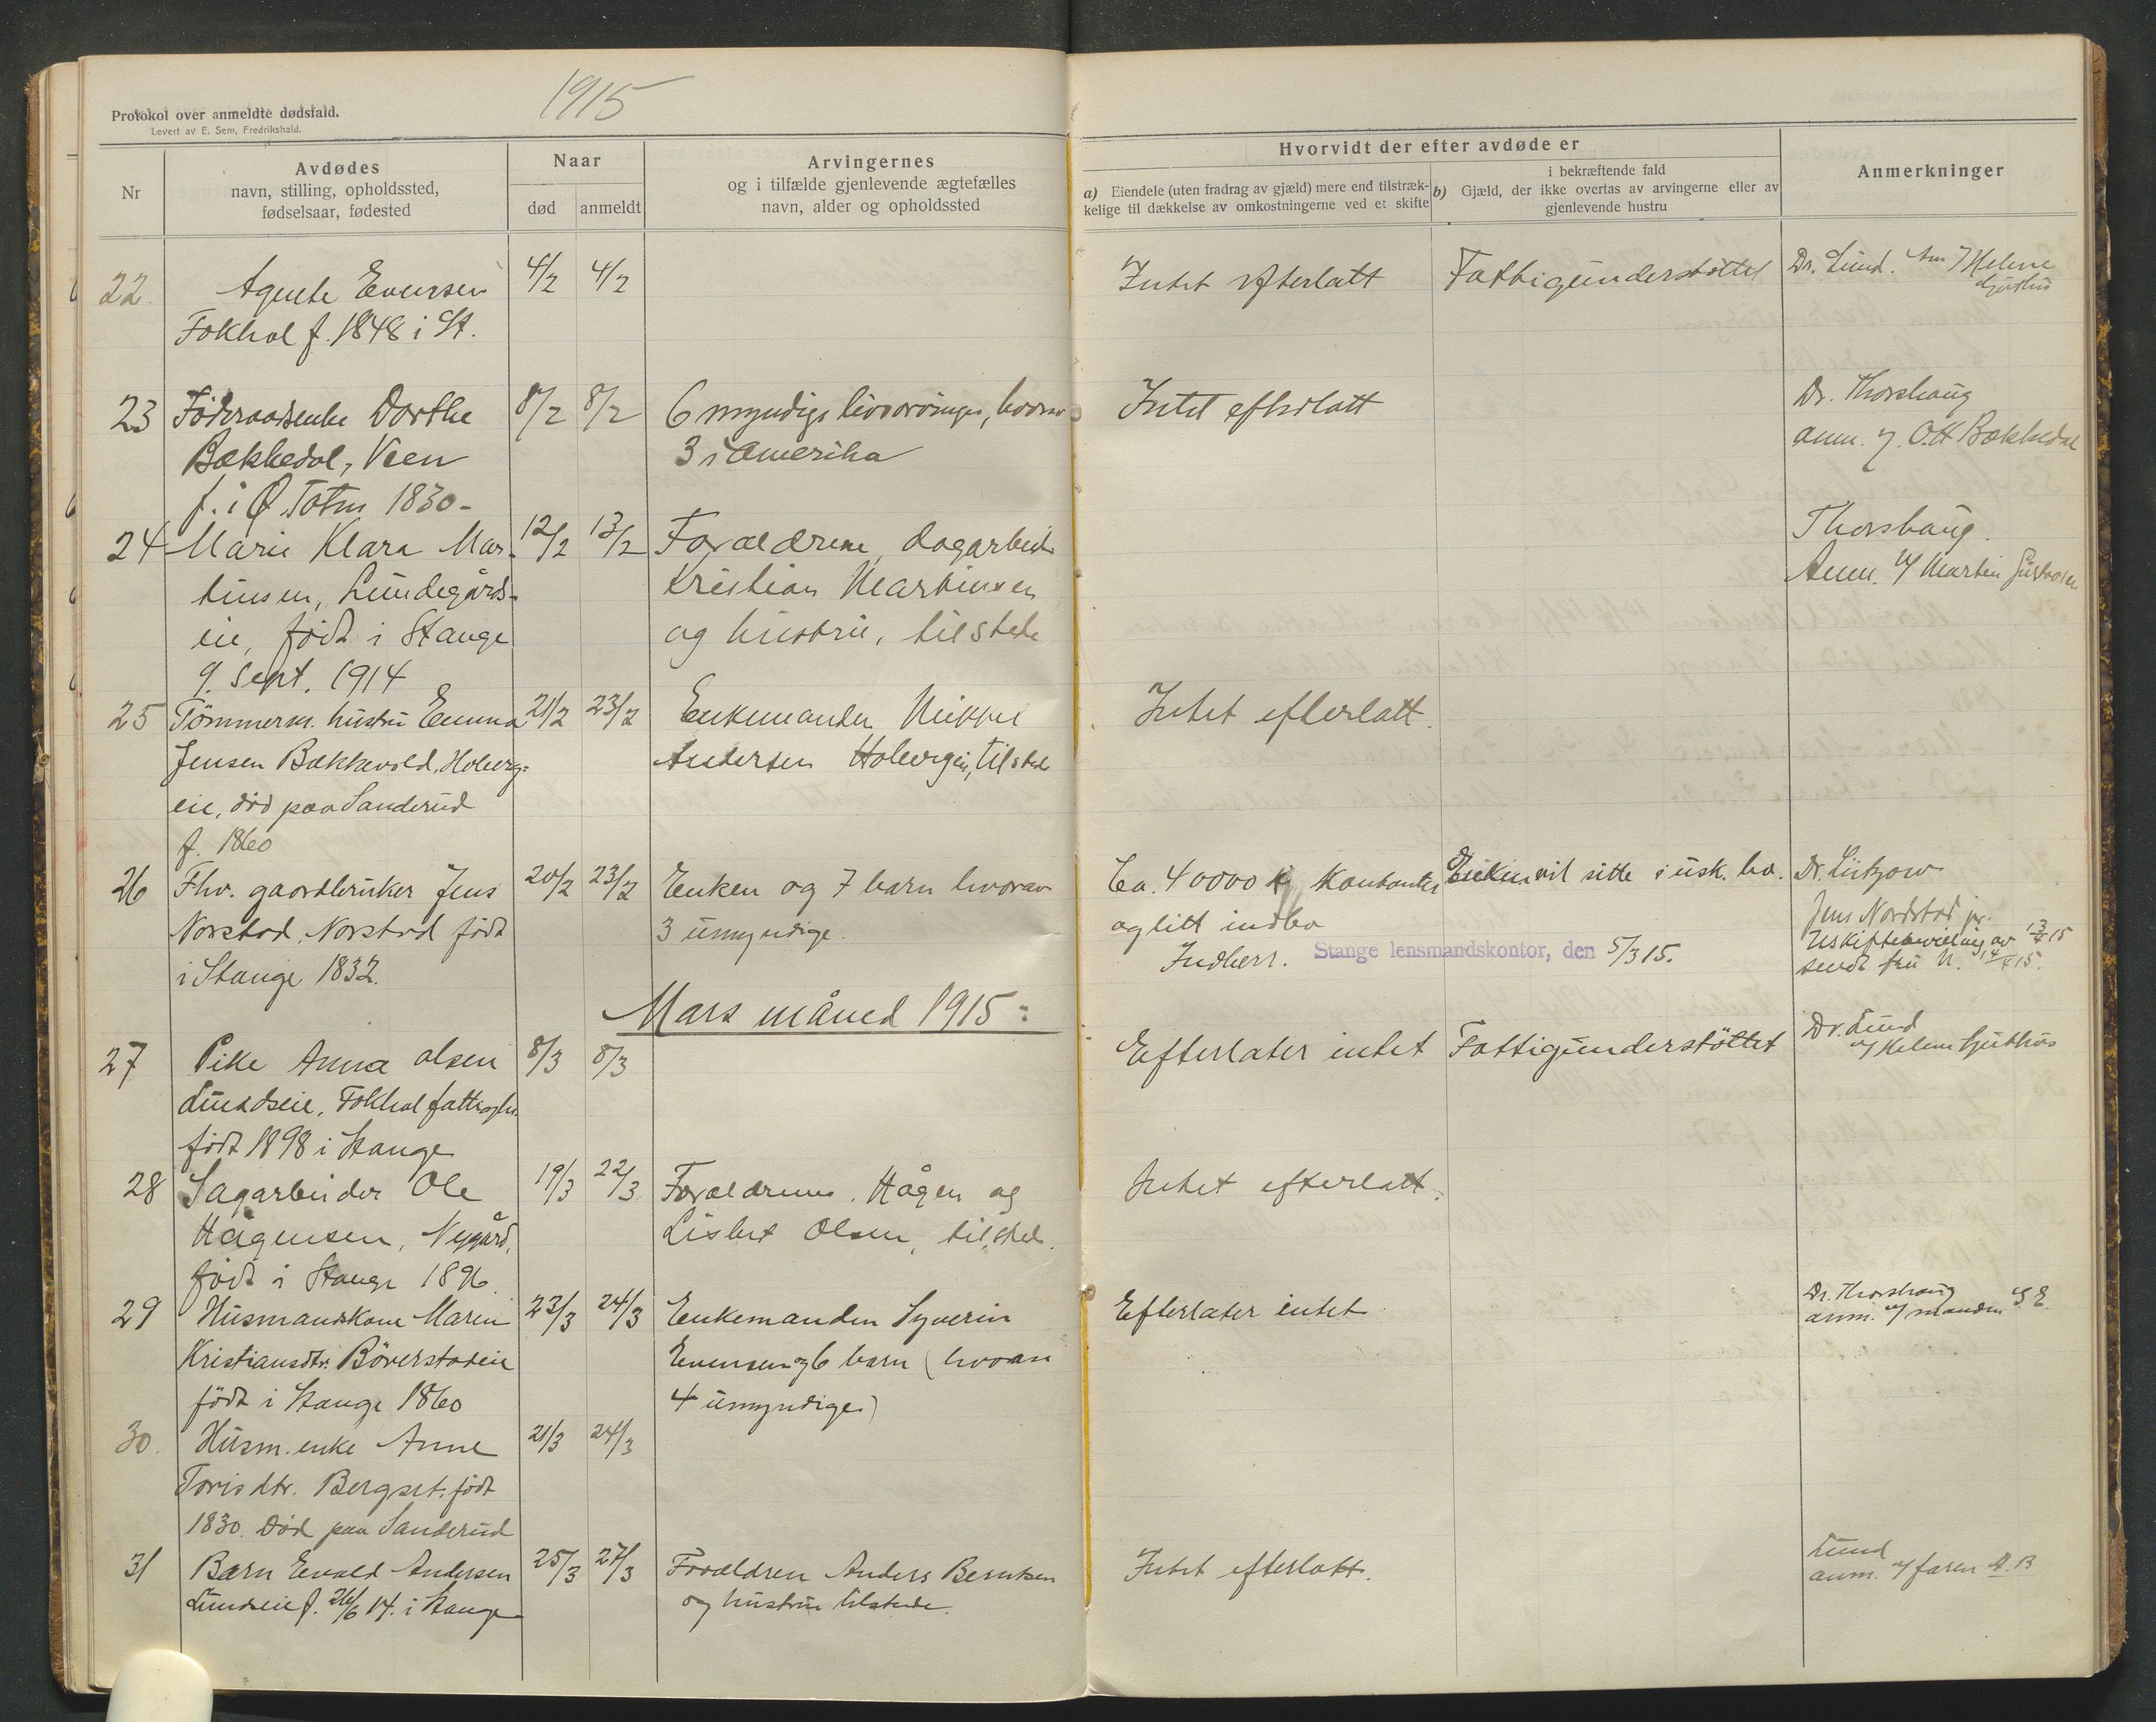 1915
Protokol over anmeldte dødsfald.
Levert av E. Sem, Fredrikshald.
Nr
Avdødes
navn, stilling, opholdssted,
fødselsaar, fødested
Naar
død
anmeldt
Arvingernes
og i tilfælde gjenlevende ægtefælles
navn, alder og opholdssted
Hvorvidt der efter avdøde er
a) Eiendele (uten fradrag av gjæld) mere end tilstræk-
kelige til dækkelse av omkostningerne ved et skifte
i bekræftende fald
b) Gjæld, der ikke overtas av arvingerne eller av
gjenlevende hustru
Anmerkninger
22. Agnete Evensen 4/2 4/2 Intet efterlatt Fattigunderstöttet Dr. Lund. Anm. v/ Helene
Fokhol f. 1848 i St.
23 Föderaadsenke Dorthe 8/2 8/2 6 myndige livsarvinger, hvorav Intet efterlatt Dr. Thorshaug
Bækkedal, Veen 3 i Amerika anm. v/ O.H Bækkedal
f. i Ø. Toten 1830-
24 Marie Klara Mar- 12/2 13/2 Forældrene, dagarbeider Thorshaug.
tinsen, Lundegårds- Kristian Martinsen Anm. v/ Martin Gustavsen
eie, född i Stange og hustru, tilstede
9. Sept. 1914
25 Tömmerm. hustru Emma 21/2 23/2 Enkemanden Intet efterlatt.
Jensen Bækkevold, Holberg- Andersen tilstede
eie, död paa Sanderud
f. 1860
26 Fhv. gaardbruker Jens 20/2 23/2 Enken og 7 barn hvorav Ca. 40000 kr kontanter Enken vil sitte i usk. bo. Dr. Lützow
Norstad, Norstad född 3 umyndige. og litt indbo Jens Nordstad jr.
i Stange 1832. Indberr. Stange lensmandskontor, den 5/3 15. Uskiftebevilling av 13/4 15
sendt fru N. 14/4 15.
Mars måned 1915:
27 Pike Anna Olsen 8/3 8/3 Efterlater intet Fattigunderstöttet Dr. Lund
Lundseie, Fokhol fattigh. v/ Helene
född 1898 i Stange
28 Sagarbeider Ole 19/3 22/3 Forældrene, Hågen og Intet efterlatt.
Hågensen, Nygård, Lisbet Olsen, tilsted.
född i Stange 1896.
29 Husmandskone Maren 23/3 24/3 Enkemanden Syverin Efterlater intet Dr. Thorshaug
Kristiansdtr. Böverstadeie Evensen og 6 barn (hvorav anm. v/ manden S E.
född i Stange 1860 4 umyndige)
30. Husm. enke Anne 21/3 24/3
Torisdtr. Bergset. född
1830. Död paa Sanderud
31 Barn Evald Andersen 25/3 27/3 Forældren Anders Berntsen Intet efterlatt. Lund
Lundseie f. 26/6 14. i Stange og hustru tilstede. anm. v/ faren A.B